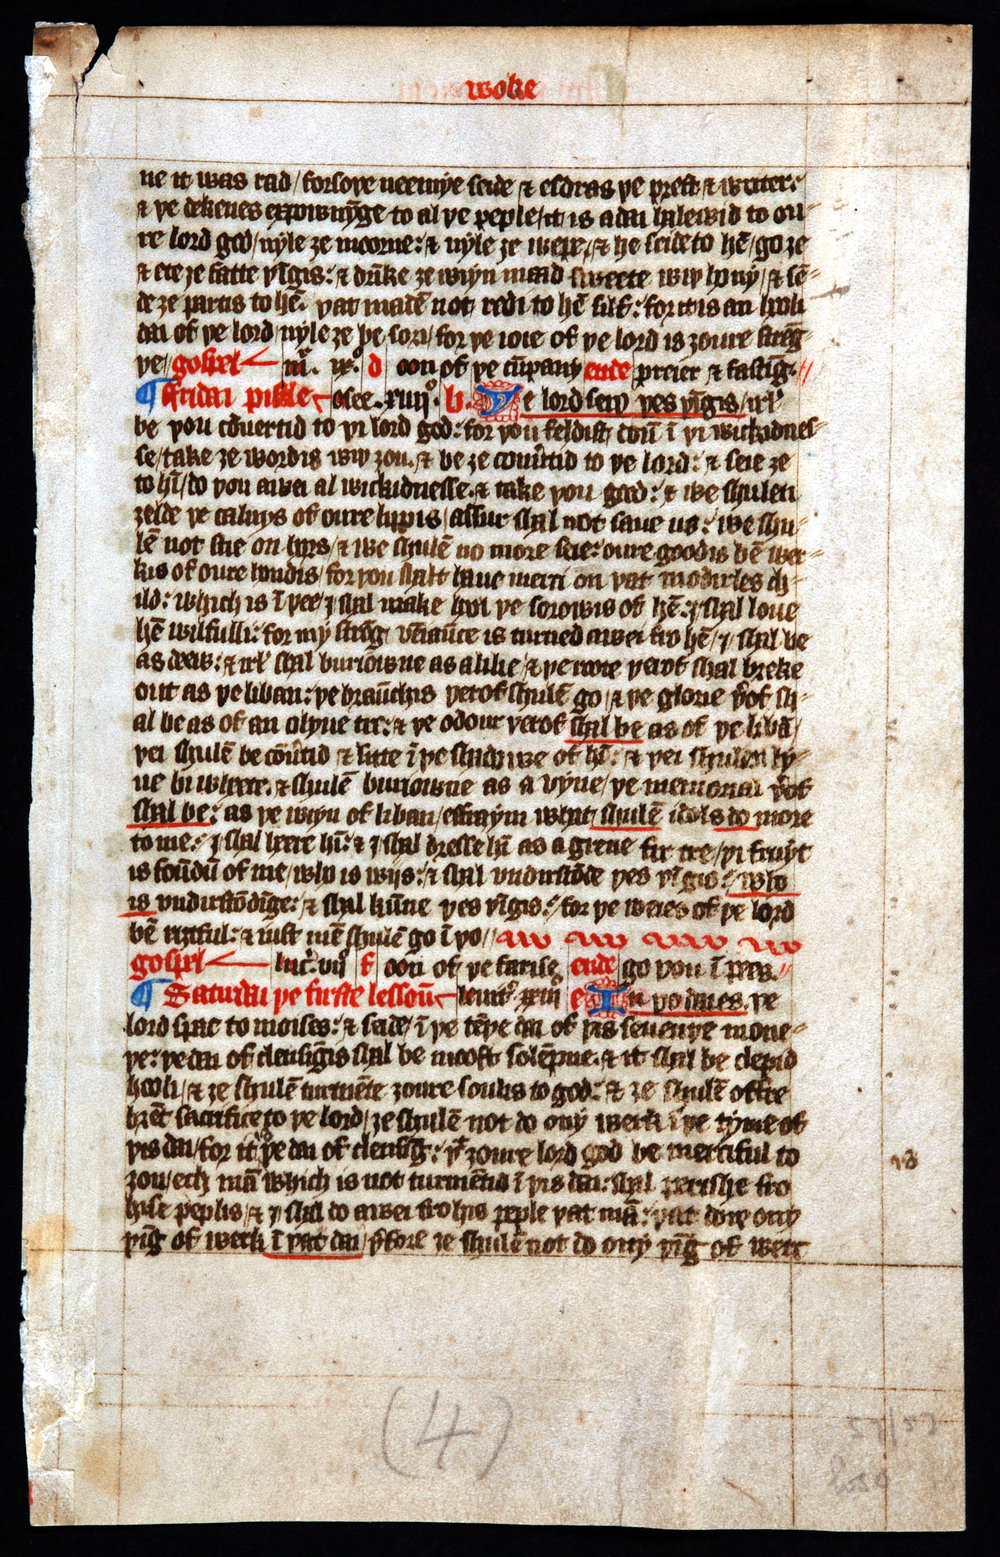 woke
ue it was rad / forsoþe neemye seide & esdras þe prest & writer:
& þe dekenes expownyge to al þe peple / it is a dai halewid to ou=
re lord god / nyle ȝe moorne: & nyle ȝe wepe / & he seide to hē / go ȝe
& ete ȝe fatte þīgis: & drīke ȝe wiyn maad sweete wiþ hony / & sē=
de ȝe partis to hē þat madē not redi to hē silf: for it is an hooli
dai of þe lord / nyle ȝe be sori / for þe ioie of þe lord is ȝoure streg
þe / gospel mͬ. ix. d oon of þe cūpany ende preier & fastīg. //
¶ Fridai pistle osee. xiiij°. b. Þe lord seiþ þes þīgis / isrˡ
be þou cōuertid to þi lord god: for þou feldist doū ī þi wickidnes=
se / take ȝe wordis wiþ ȝou. & be ȝe conūtid to þe lord: & seie ȝe
to hī / do þou awei al wickidnesse. & take þou good: & we shulen
ȝelde þe caluys of oure lippis / assur shal not saue us: we shu=
lē not stie on hors / & we shulē no more seie: oure goodis bē wer=
kis of oure hondis / for þou shalt haue merci on þat modirles ch=
ild: which is ī þee / I shal make hool þe sorowis of hē: I shal loue
hē wilfulli: for my strōg veniaūce is turned awei fro hē / I shal be
as deew: & isrˡ shal buriowne as a lilie / & þe roote þerof shal breke
out as þe liban: þe braūchis þerof shulē go / & þe glorie þ'of sh=
al be as of an olyue tre: & þe odour þerof shal be as of þe libā /
þei shulē be cōūtid & sitte ī þe shadewe of hī: & þei shulen ly=
ue bi wheete. & shulē buriowne as a vyne / þe memorial þ'of
shal be: as þe wiyn of liban / effraym what shulē idols do more
to me: I shal heere hī: & I shal dresse hī as a grene fir tre / þi fruyt
is foūdū of me / who is wijs: & shal vndirstōde þes þīgis: who
is vndirstōdīge: & shal kūne þes þīgis: for þe weies of þe lord
bē riȝtful: & iust mē shulē go ī þo //
gospel luc. vij. f oon of þe farise. ende go þou ī pees. //
¶ Saturdai þe firste lessoū leuit°. xxiij e In þo daies. þe
lord spac to moises: & seide / ī þe tēþe dai of þis seuenþe mone=
þe: þe dai of clensīgis shal be moost solēpne. & it shal be clepid
hooli / & ȝe shulē turmēte ȝoure soulis to god: & ȝe shulē offre
brēt sacrifice to þe lord / ȝe shulē not do ony werk ī þe tyme of
þis dai / for it is þe dai of clensīg: þͭ ȝoure lord god be merciful to
ȝou / ech mā which is not turmētid ī þis dai: shal perishe fro
hise peplis / & I shal do awei fro his peple þat mā: þat doiþ ony
þīg of werk ī þat dai / þ'fore ȝe shulē not do ony þīg of werk
(4)